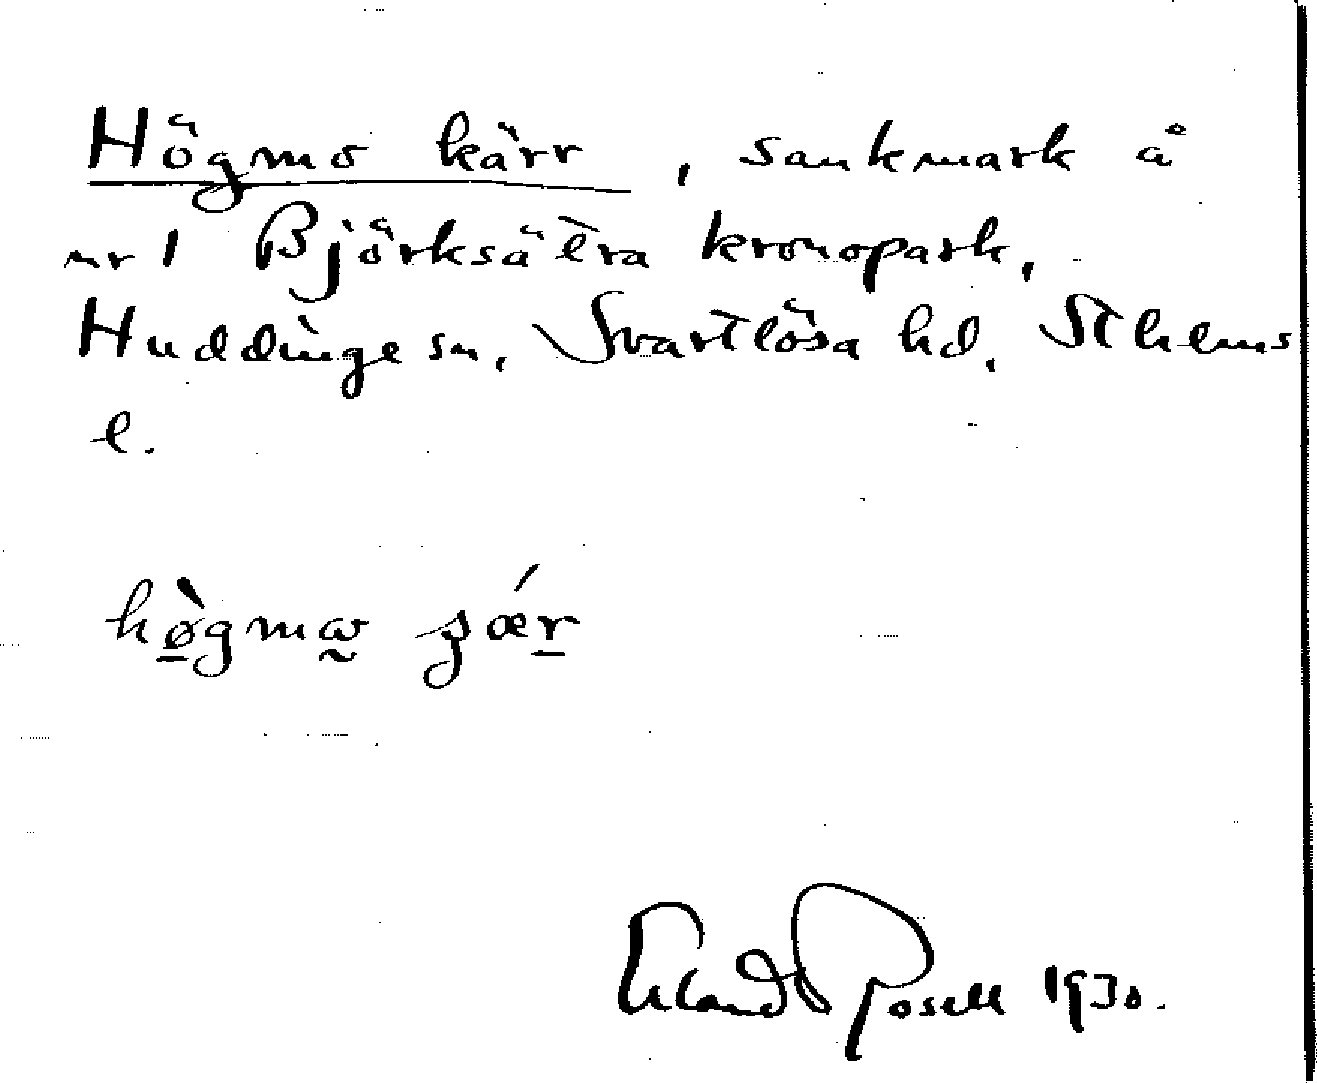 Högmo kärr, sankmark å
nr 1 Björksätra kronopark,
Huddinge sn, Svartlösa hd, Sthlms
l.
hø̀gmꞷ kǽr
Erland Rosell 1930.